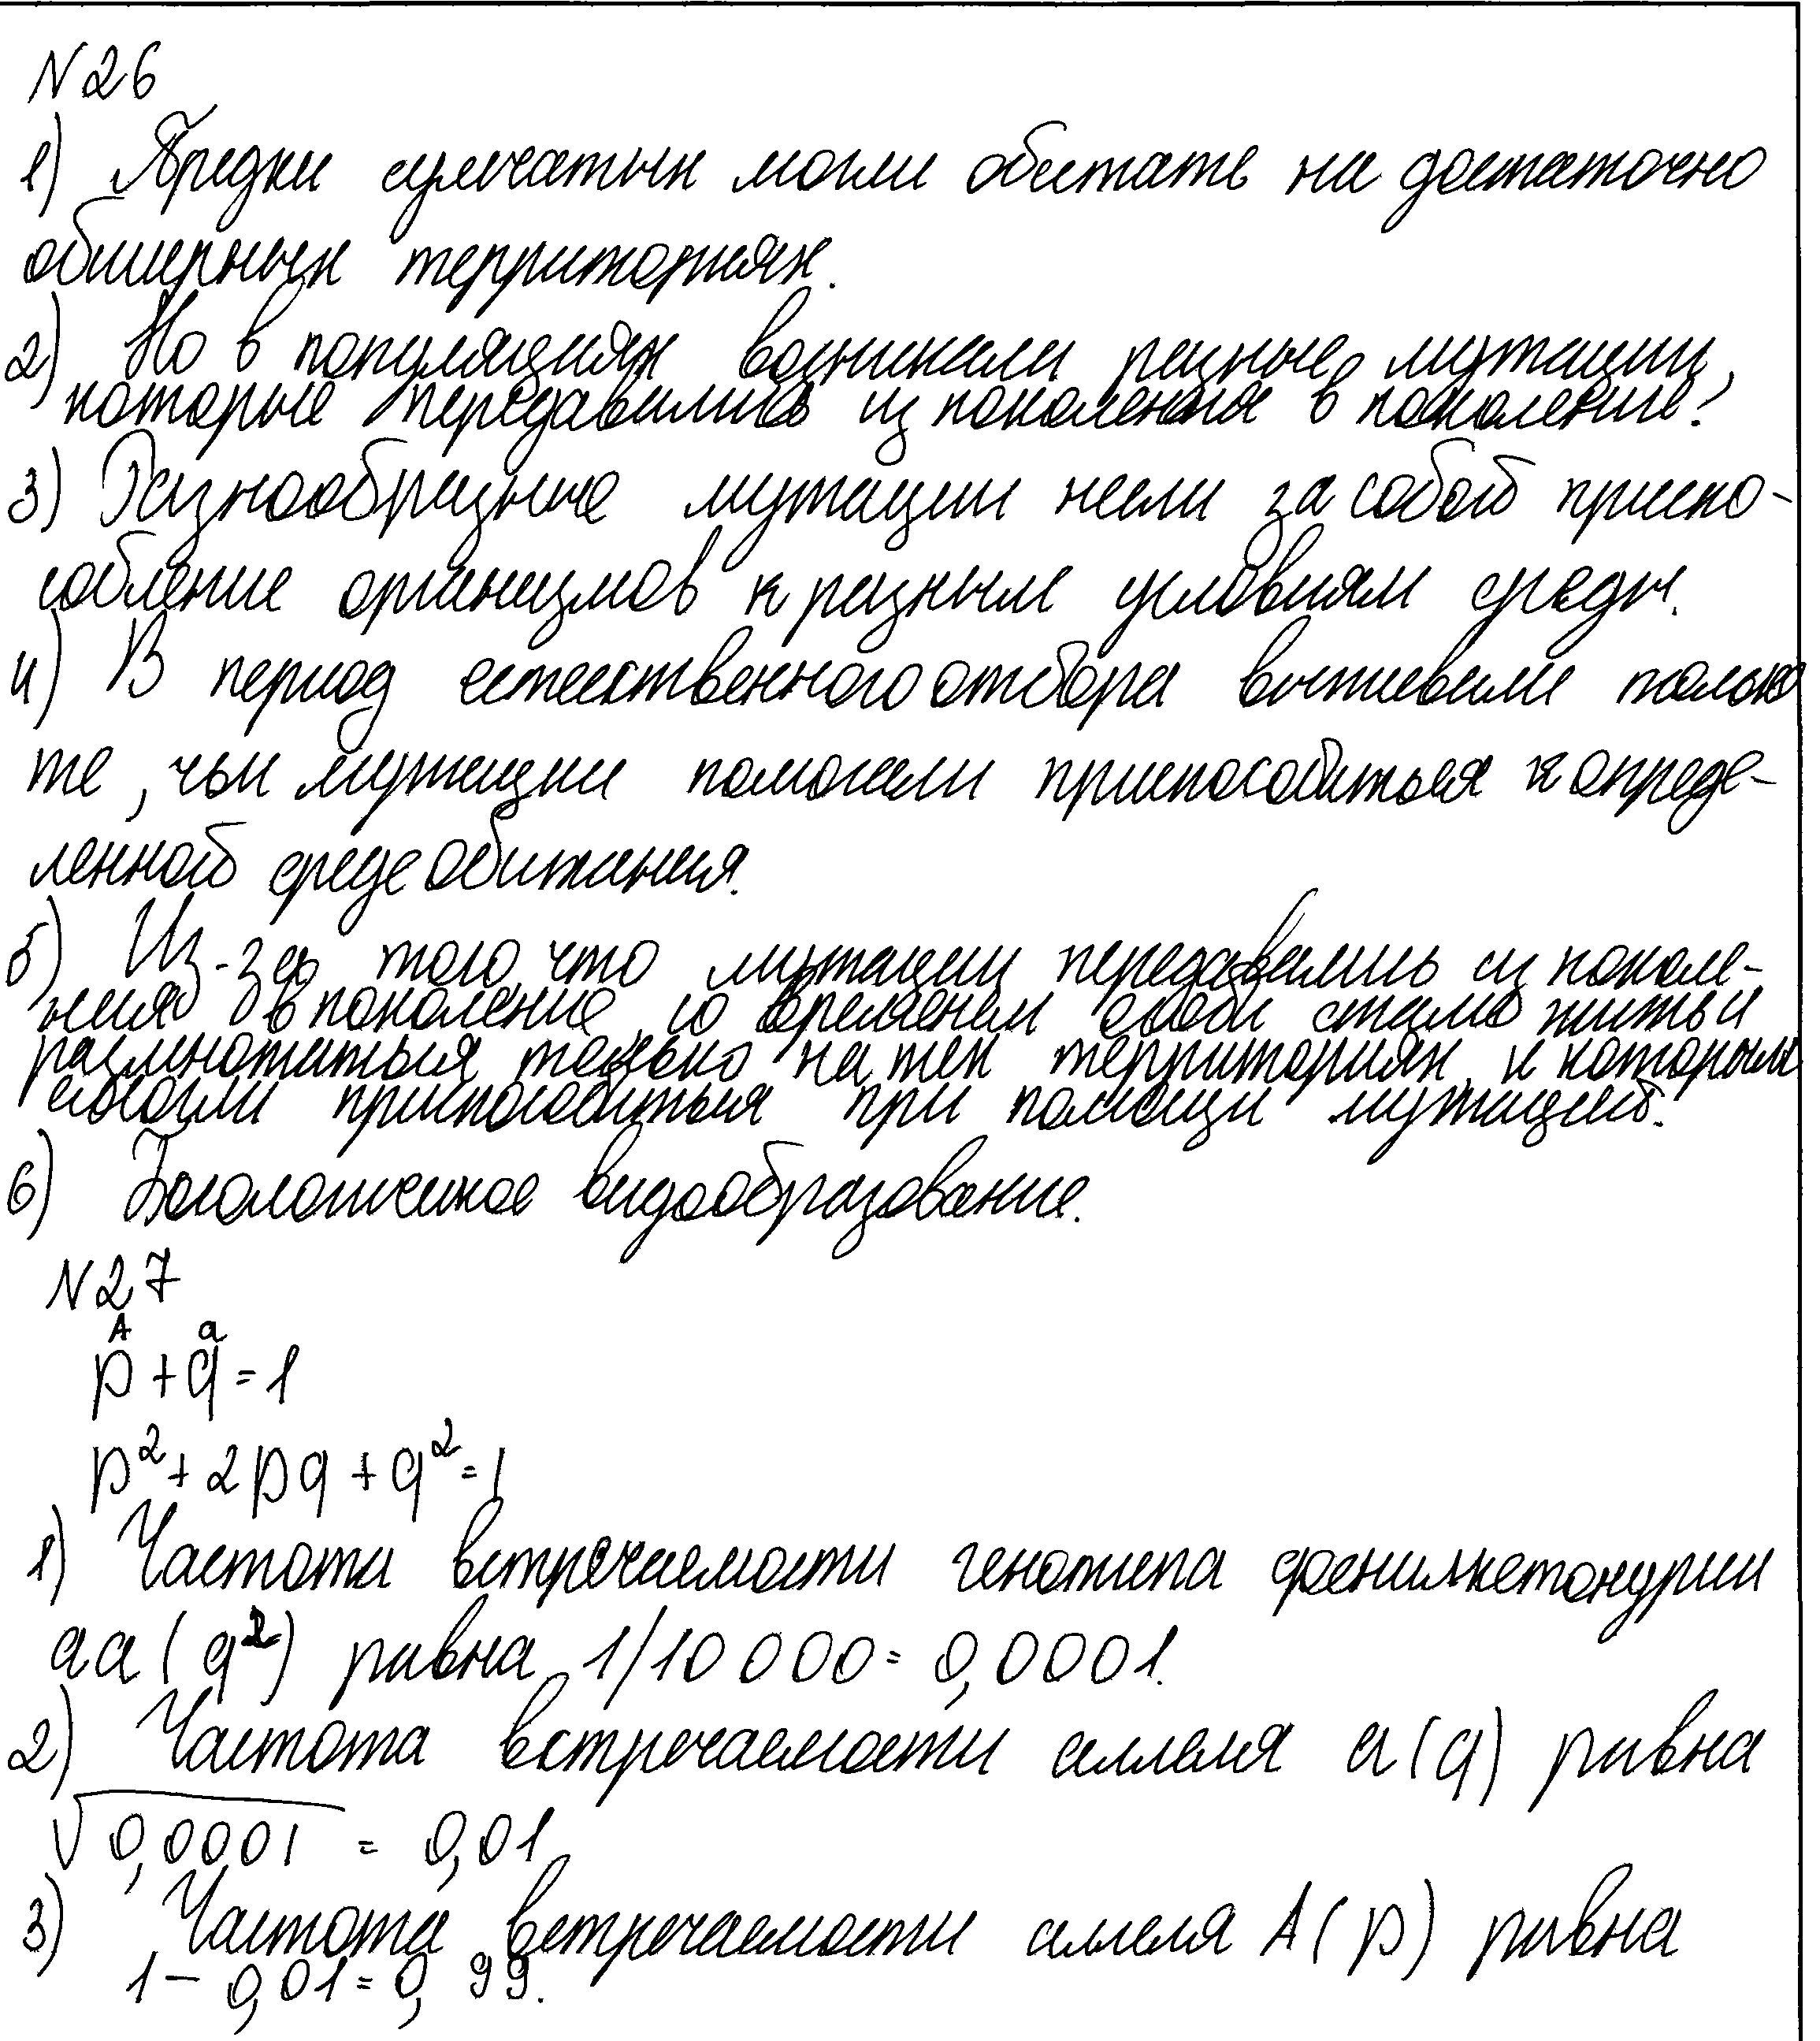 N26
1) Предки сумчатых могли обитать на достаточно
обширных территориях.
2) Но в популяциях возникали разные мутации,
которые передавались из поколения в поколение?
3) Разнообразные мутации несли за собой приспо-
собление организмов к разным условиям среды.
4) В период естественного отбора выживали только
те, чьи мутации помогали приспособиться к опреде-
ленной среде обитания.
5) Из-за того, что мутации передавались из поколе-
ния в поколение, со временем особи стали жить и
размножаться только на тех территориях, к которым
смогли приспособиться при помощи мутаций.
6) Экологическое видообразование.
N27
A a
p + q = 1
p² + 2pq + q² = 1
1) Частота встречаемости генотипа фенилкетонурии
aa (q²) равна 1/10 000 = 0,0001.
2) Частота встречаемости аллеля a (q) равна
√0,0001 = 0,01
3) Частота встречаемости аллеля A (p) равна
1 - 0,01 = 0,99.